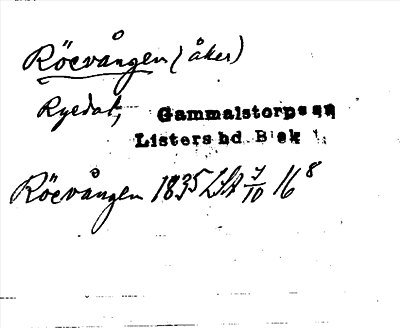 Röevången (åker)
Ryedal, Gammalstorps sn
Listers hd. Blek
Röevången 1835 LSA 7/10 16⁸